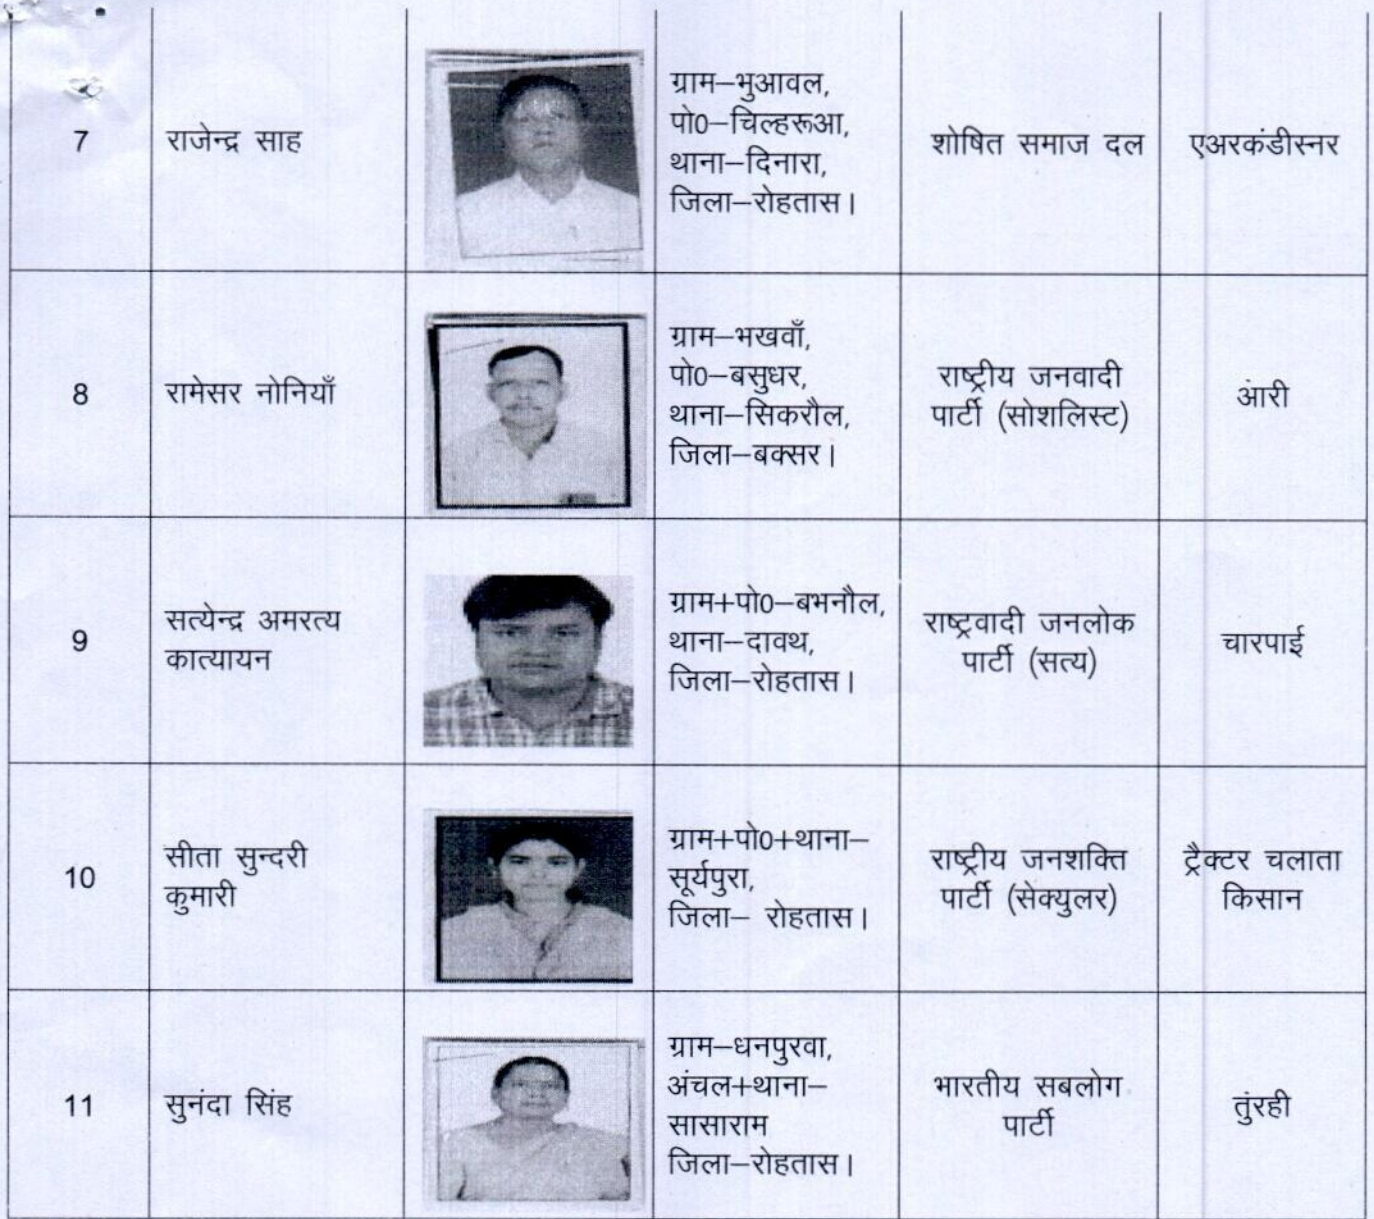 7
राजेन्द्र साह
ग्राम–भुआवल,
पो0–चिल्हरूआ,
थाना–दिनारा,
जिला–रोहतास।
शोषित समाज दल
एअरकंडीस्नर
8
रामेसर नोनियाँ
ग्राम–भखवाँ,
पो0–बसुधर,
थाना–सिकरौल,
जिला–बक्सर।
राष्ट्रीय जनवादी
पार्टी (सोशलिस्ट)
आरी
9
सत्येन्द्र अमरत्य
कात्यायन
ग्राम+पो0–बभनौल,
थाना–दावथ,
जिला–रोहतास।
राष्ट्रवादी जनलोक
पार्टी (सत्य)
चारपाई
10
सीता सुन्दरी
कुमारी
ग्राम+पो0+थाना–
सूर्यपुरा,
जिला– रोहतास।
राष्ट्रीय जनशक्ति
पार्टी (सेक्युलर)
ट्रैक्टर चलाता
किसान
11
सुनंदा सिंह
ग्राम–धनपुरवा,
अंचल+थाना–
सासाराम
जिला–रोहतास।
भारतीय सबलोग
पार्टी
तुंरही